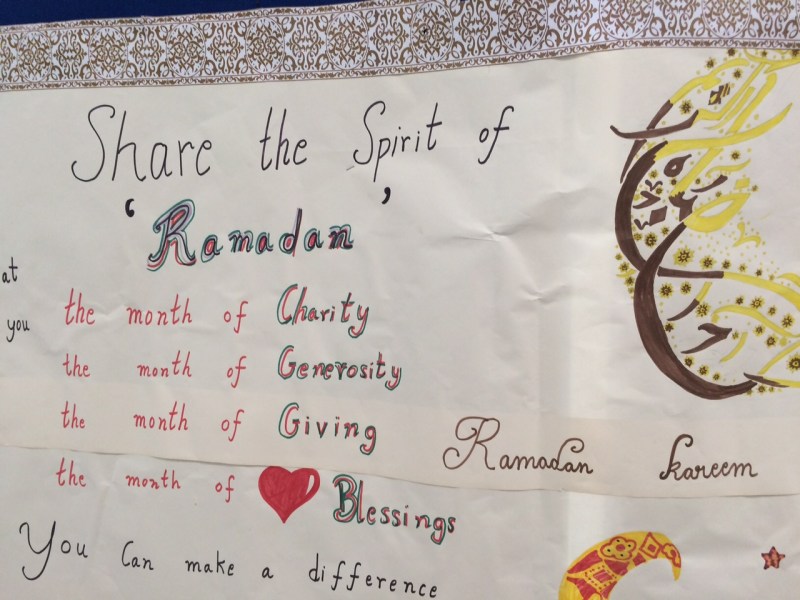 Share the Spirit of
‘Ramadan’
at
you
the month of Charity
the month of Generosity
the month of Giving
the month of Blessings
You Can make a difference
Ramadan kareem